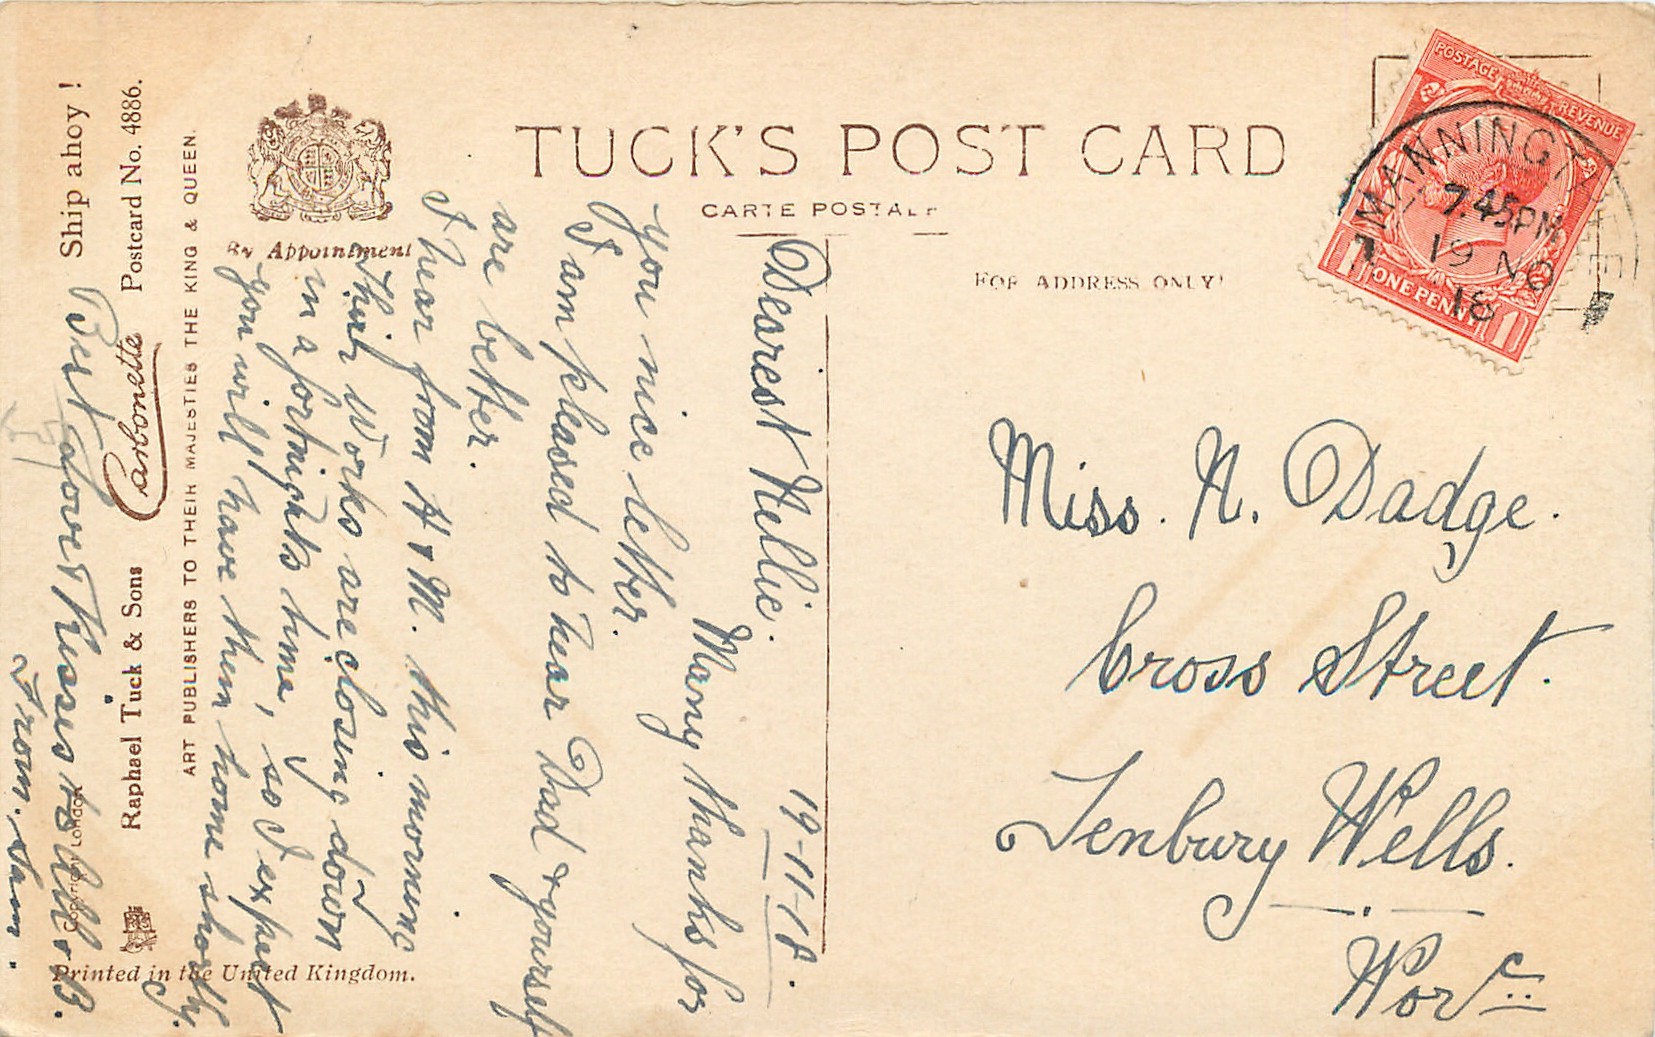 TUCK'S POST CARD
CARTE POSTALE
FOR ADDRESS ONLY
By Appointment
Ship ahoy !
Postcard No. 4886.
Carbonette
Raphael Tuck & Sons
ART PUBLISHERS TO THEIR MAJESTIES THE KING & QUEEN.
Copyright London
Printed in the United Kingdom.
POSTAGE REVENUE
ONE PENNY
1 1
MANNINGTREE
7.45PM
19 NO
18
19-11-18.
Dearest Nellie.
Many thanks for
you nice letter.
I am pleased to hear Dad & yourself
are better.
I hear from H & M. this morning
Their Works are closing down
in a fortnights time, so I expect
you will have them home shortly.
Best Love & Kisses to all & B.
From. Sam.
Miss. N. Dadge.
Cross Street.
Tenbury Wells.
Worc